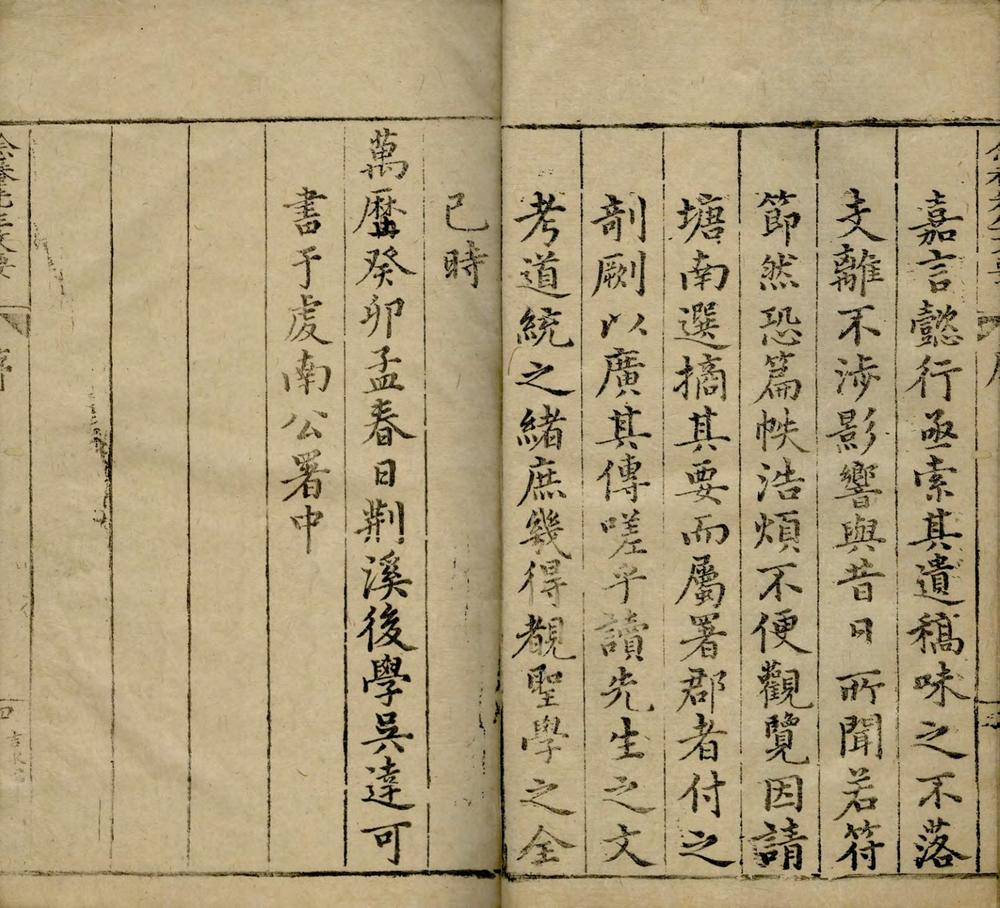 嘉言懿行亟索其遺稿味之不落
支離不涉影響與昔日所聞若符
節然恐篇帙浩煩不便觀覽因請
塘南選摘其要而屬署郡者付之
剞劂以廣其傳嗟乎讀先生之文
考道統之緒庶幾得覩聖學之全
已時
萬曆癸卯孟春日荆溪後學吳達可
書于虔南公署中
序
四